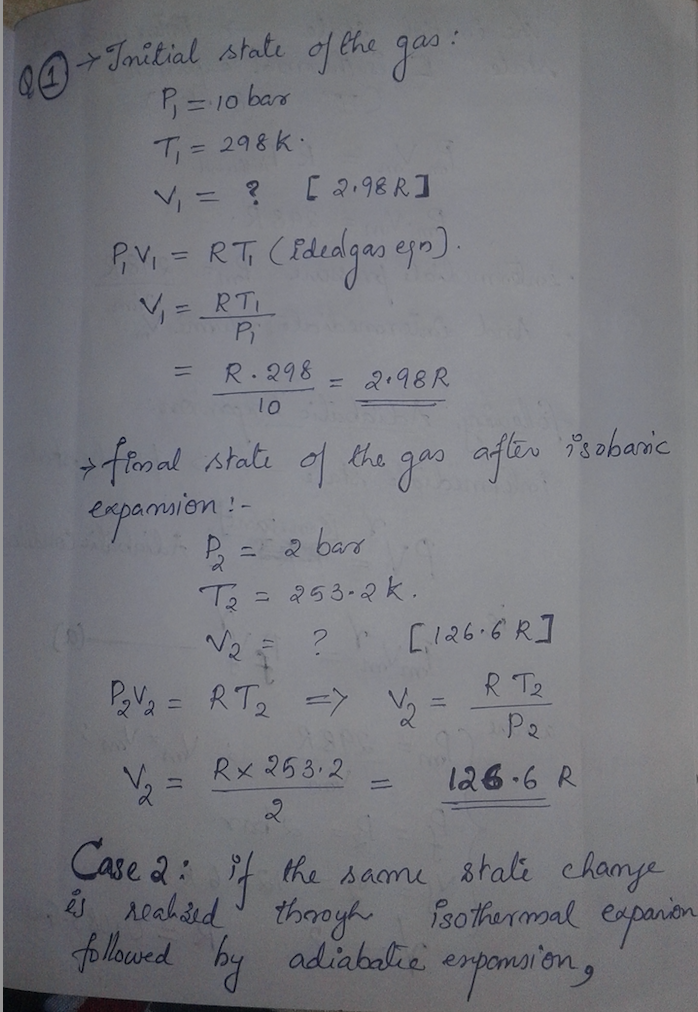 Q① → Initial state of the gas :
P₁ = 10 bar
T₁ = 298 K.
V₁ = ? [ 2.98 R ]
P₁V₁ = RT₁ (idealgas eqn).
V₁ = RT₁ / P₁
= R . 298 / 10 = 2.98 R
→ final state of the gas after isobaric
expansion :-
P₂ = 2 bar
T₂ = 253.2 K.
V₂ = ? [126.6 R]
P₂V₂ = RT₂ => V₂ = R T₂ / P₂
V₂ = R × 253.2 / 2 = 126.6 R
Case 2 : if the same state change
is realized throygh isothermal expanion
followed by adiabatic expansion,